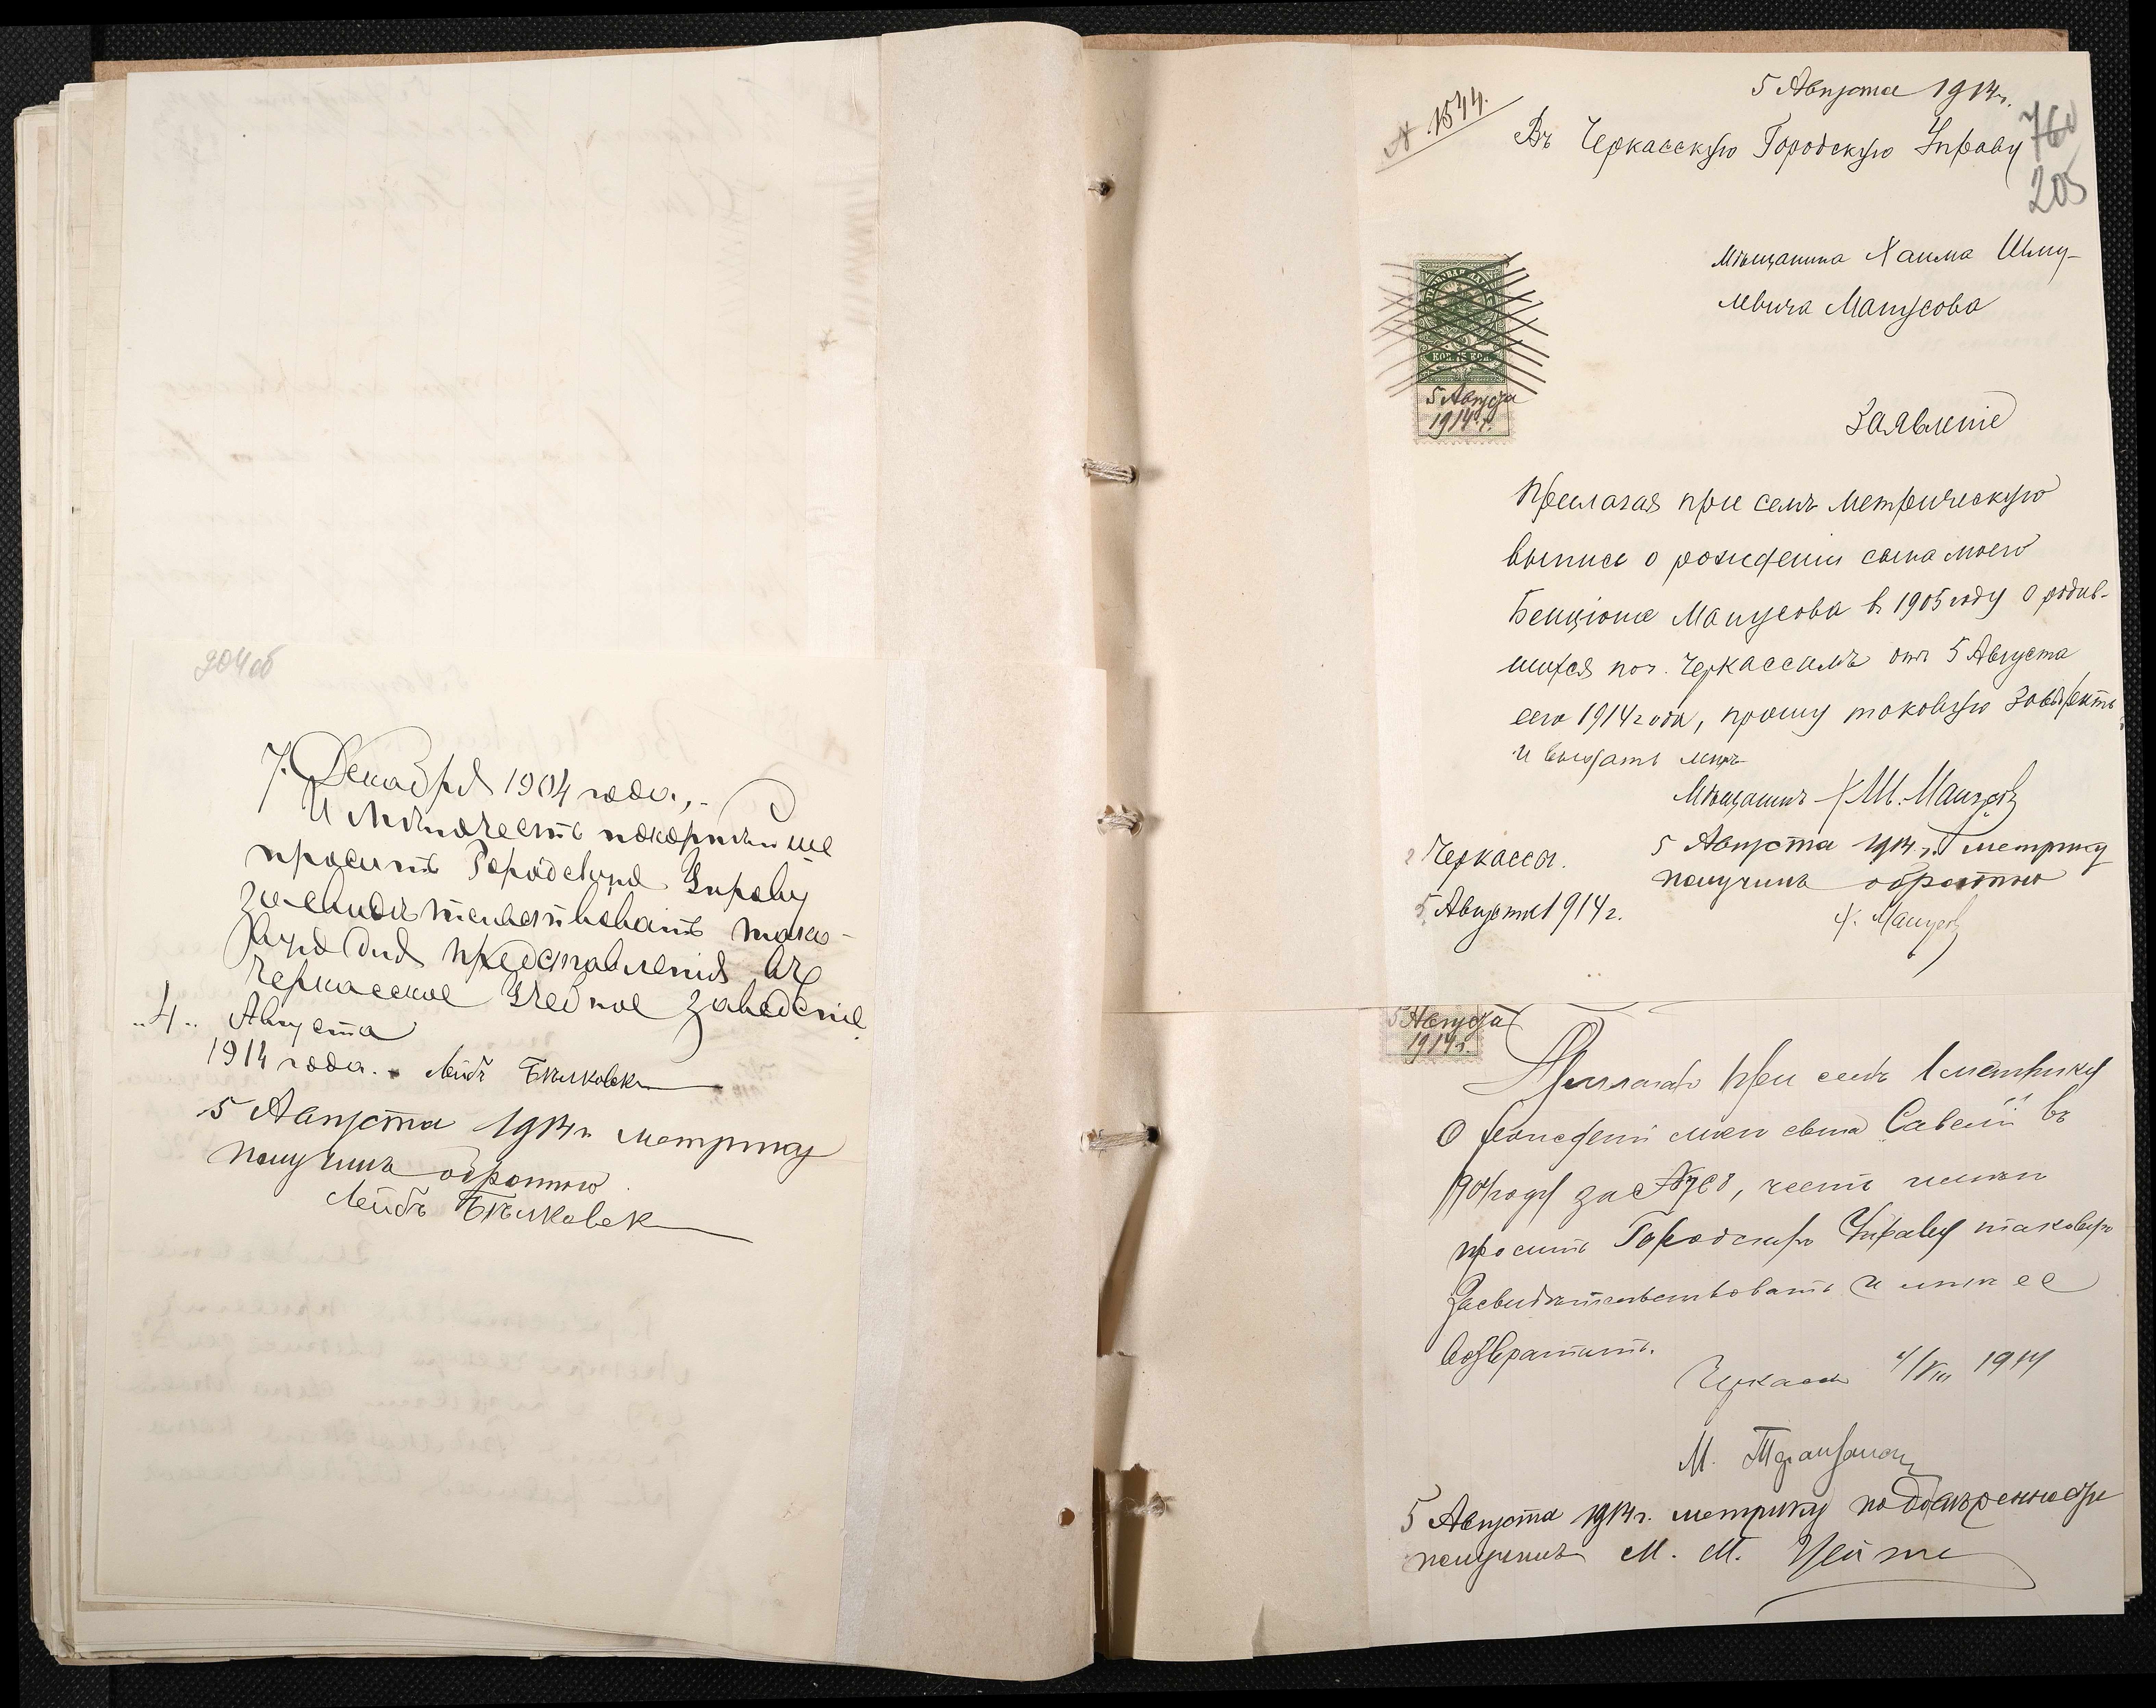 904 об
7. Декабря 1904 года,.
И имѣю честь покорнѣйше
просить Городскую Управу
засвидѣтельствовать тако-
вую для представленія въ
Черкасское Учебное заведеніе.
"4" Августа
1914 года. Лейбъ
5 Августа 1914 г. метрику
получилъ обратно
Лейбъ
5 Августа 1914 г.
№ 1544.
Въ Черкасскую Городскую Управу
760
205
Мѣщанина Хаима Шму-
левича Манусова
КОП. 75 КОП.
5 Августа
1914 г.
Заявленіе
Прилагая при семъ метрическую
выпись о рожденіи сына моего
Бенціона Манусова в 1905 году о родив-
шихся по г. Черкассамъ отъ 5 Августа
сего 1914 года, прошу таковую завѣрить
и выдать мнѣ
Мѣщанинъ Х Ш. Манусовъ
г Черкассы.
5 Августа 1914 г.
5 Августа 1914 г. метрику
получилъ обратно
Х. Манусовъ
5 Августа
1914 г.
Прилагаю при семъ 1 метрику
о рожденіи моего сына Савелій въ
1904 году за № , честь имѣю
просить Городскую Управу таковую
Засвидѣтельствовать и мнѣ ее
возвратить.
Черкассы 4/VIII 1914
М.
5 Августа 1914 г. метрику по довѣренности
получилъ М. М.